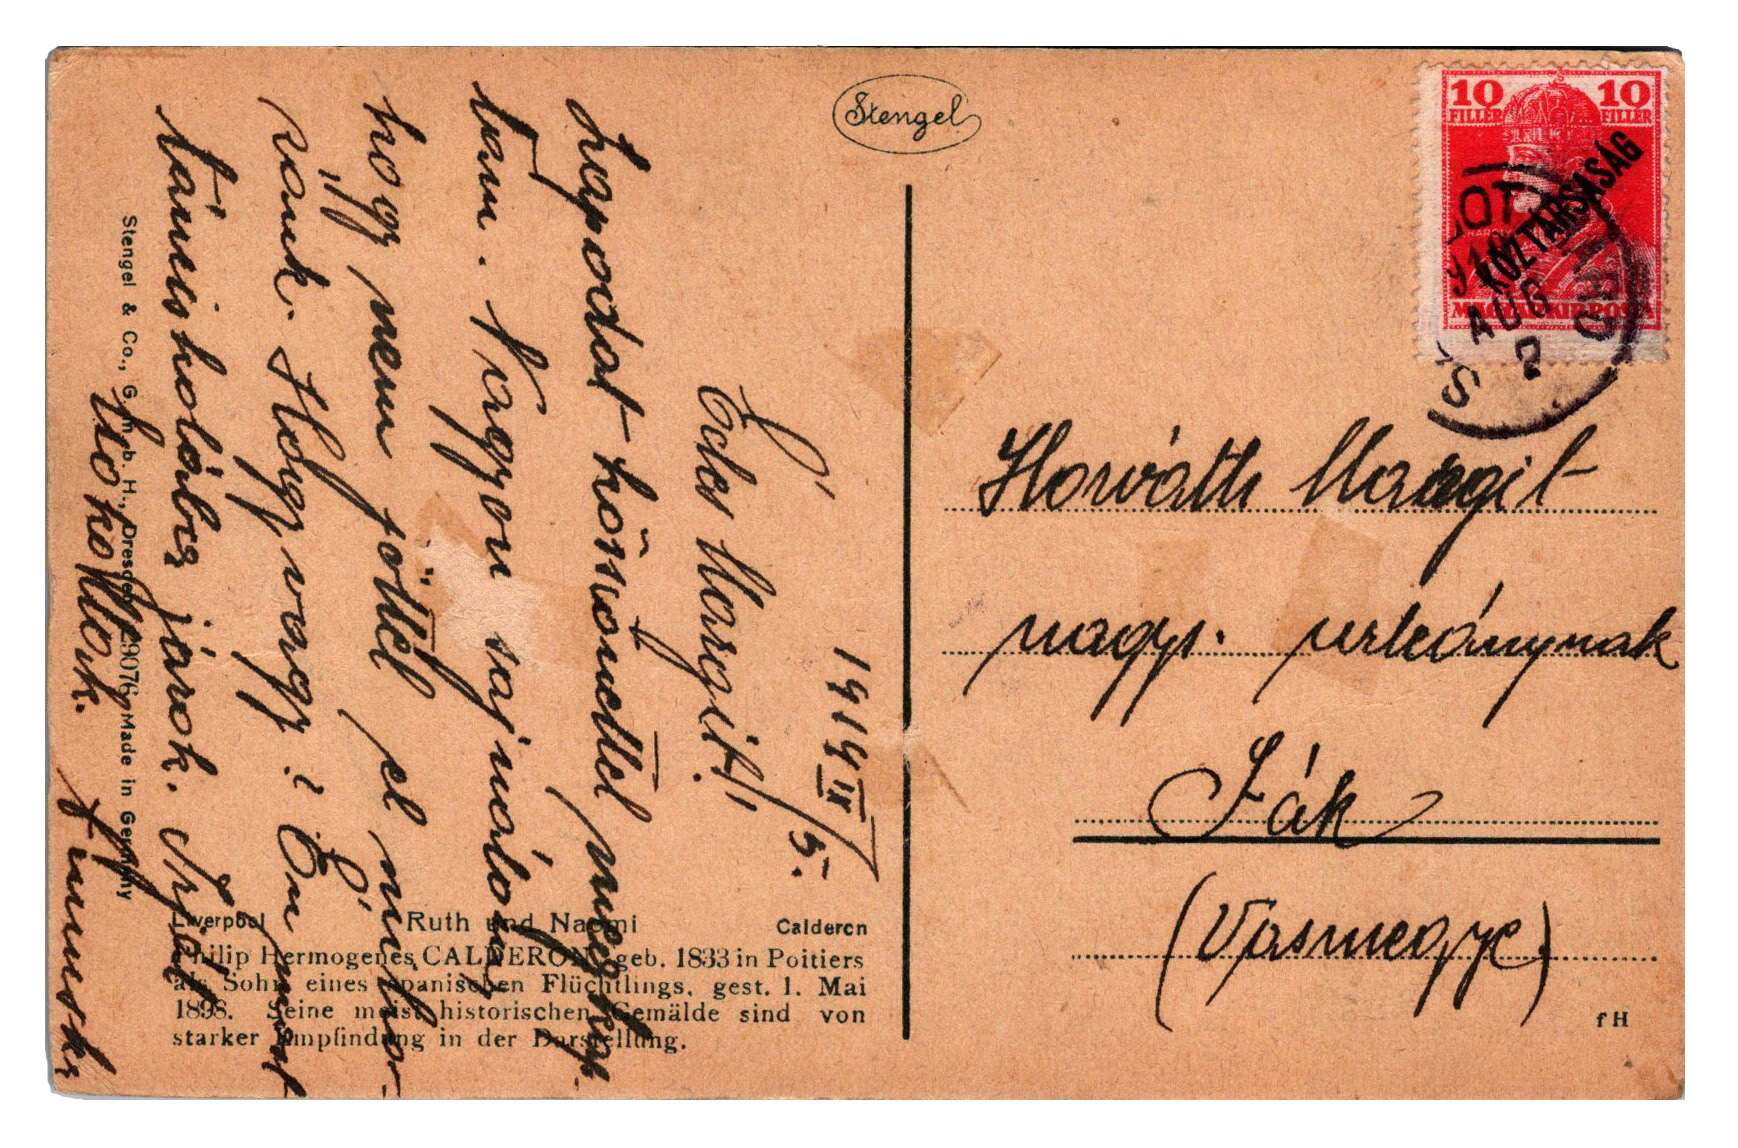 Stengel
10 10
FILLÉR FILLÉR
KÖZTÁRSASÁG
MAGYAR KIR. POSTA
AUG
1919 IX/5.
Édes Margit!
Lapodat köszönettel megkap-
tam. Nagyon sajnálom
hogy nem jöttél el miho-
zánk. Hogy vagy? Én most
tánciskolába járok. Írjál
sokollok.
Annuska
Horváth Margit
nagys. urleánynak
Ják
(Vasmegye)
Liverpool Ruth und Naomi Calderon
Philip Hermogenes CALDERON, geb. 1833 in Poitiers
als Sohn eines spanischen Flüchtlings, gest. 1. Mai
1898. Seine meist historischen Gemälde sind von
starker Empfindung in der Darstellung.
Stengel & Co., G. m. b. H., Dresden 29076 Made in Germany
fH